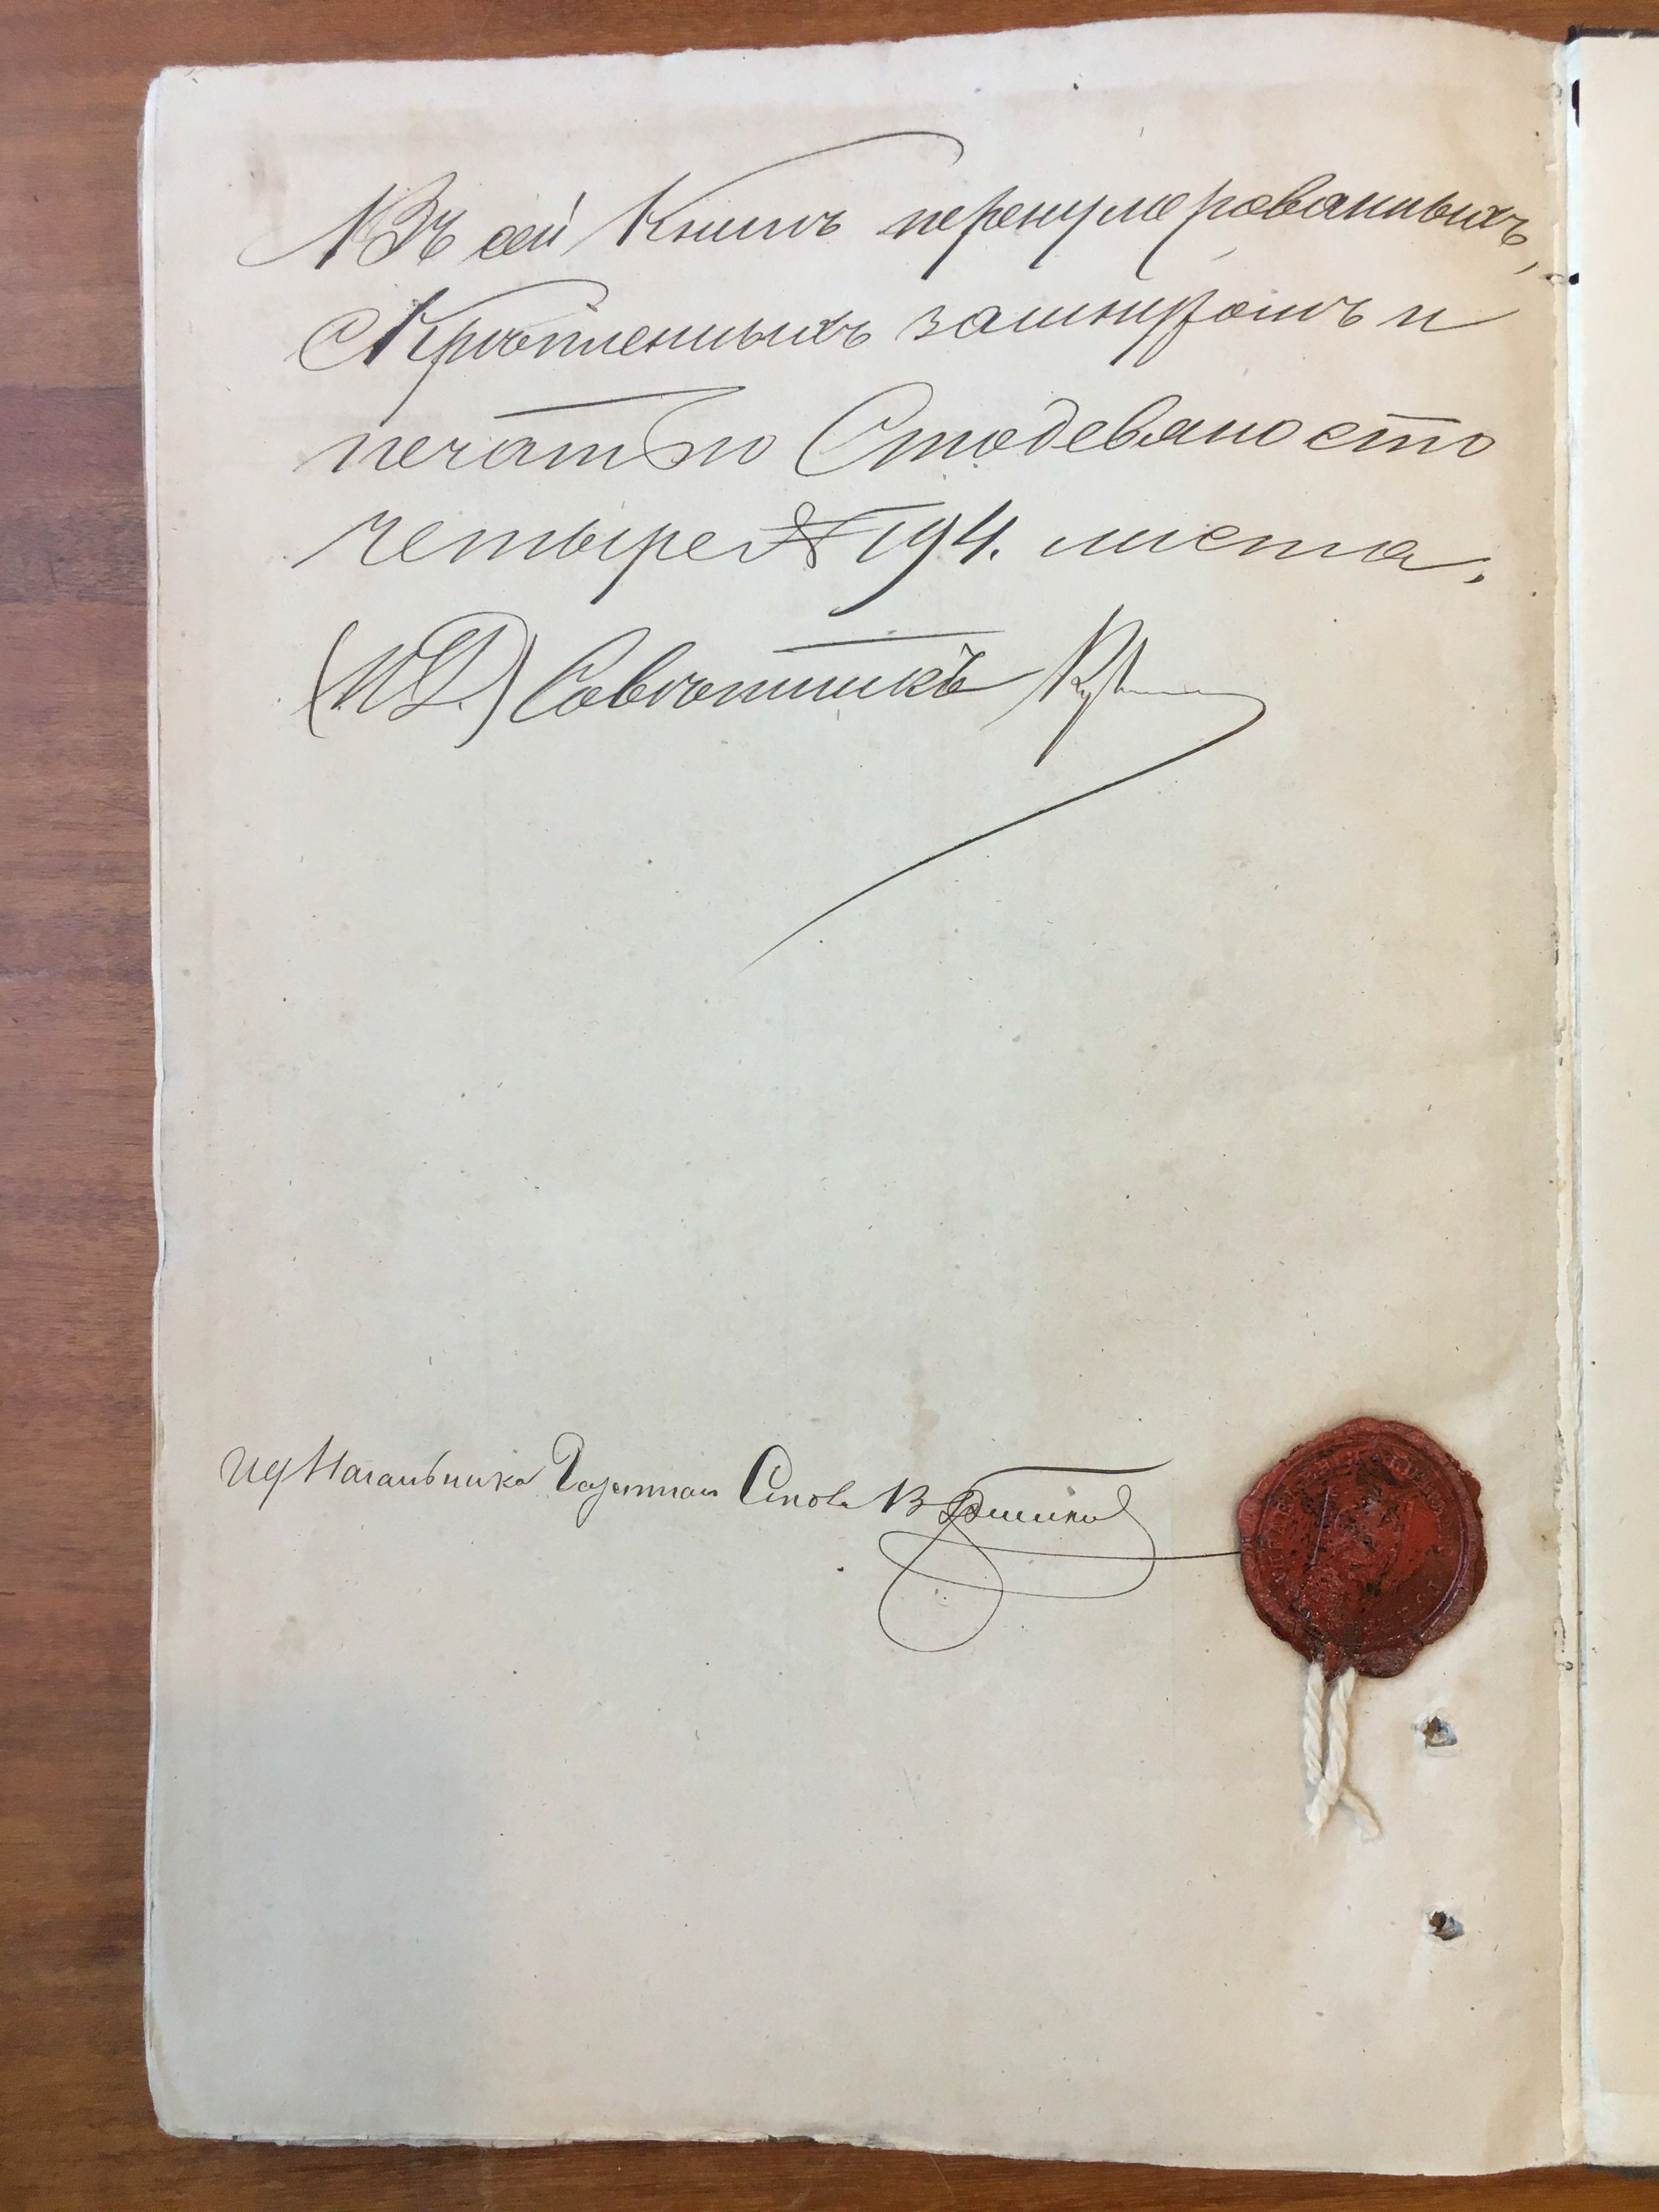 Въ сей Книгѣ перенумерованныхъ,
Скрѣпленныхъ зашнуромъ и
печатью Стодевяносто
четыре № 194. листа.
(И.Д.) Совѣтникъ
ИД Начальника Газетнаго Стола В